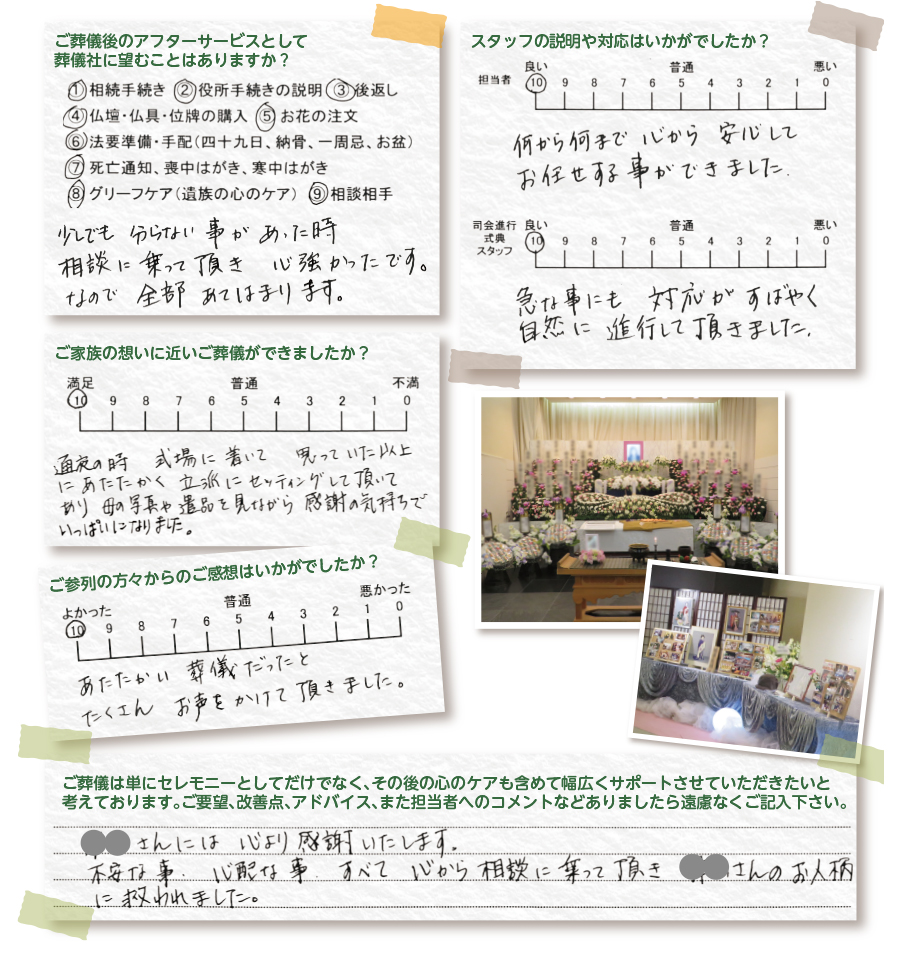 ご葬儀後のアフターサービスとして
葬儀社に望むことはありますか？
①相続手続き ②役所手続きの説明 ③後返し
④仏壇・仏具・位牌の購入 ⑤お花の注文
⑥法要準備・手配（四十九日、納骨、一周忌、お盆）
⑦死亡通知、喪中はがき、寒中はがき
⑧グリーフケア（遺族の心のケア） ⑨相談相手
少しでも 分らない 事が あった時
相談に乗って頂き 心強かったです。
なので 全部 あてはまります。
スタッフの説明や対応はいかがでしたか？
良い 普通 悪い
担当者
10 9 8 7 6 5 4 3 2 1 0
何から何まで 心から 安心して
お任せする事ができました.
司会進行 良い 普通 悪い
式典
スタッフ
10 9 8 7 6 5 4 3 2 1 0
急な事にも 対応が すばやく
自然に 進行して頂きました.
ご家族の想いに近いご葬儀ができましたか？
満足 普通 不満
10 9 8 7 6 5 4 3 2 1 0
通夜の時 式場に着いて 思っていた以上
にあたたかく 立派にセッティングして頂いて
あり 母の写真や遺品を見ながら 感謝の気持ちで
いっぱいになりました。
ご参列の方々からのご感想はいかがでしたか？
よかった 普通 悪かった
10 9 8 7 6 5 4 3 2 1 0
あたたかい 葬儀だったと
たくさん お声をかけて頂きました。
ご葬儀は単にセレモニーとしてだけでなく、その後の心のケアも含めて幅広くサポートさせていただきたいと
考えております。ご要望、改善点、アドバイス、また担当者へのコメントなどありましたら遠慮なくご記入下さい。
さんには 心より 感謝いたします。
不安な事. 心配な事. すべて 心から相談に乗って頂き さんのお人柄
に救われました。